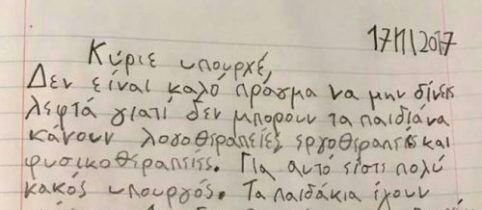 17/11/2017
Κύριε υπουρχέ,
Δεν είναι καλό πράγμα να μην δίνεις
λεφτά γιατί δεν μπορουν τα παιδιά να
κάνουν λογοθεραπείες εργοθεραπείες και
φυσικοθεραπείες. Για αυτό είστε πολύ
κακός υπουργός. Τα παιδάκια έχουν